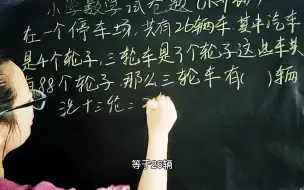 小学数学试卷题
在一个停车场,共有26辆车.其中汽车
是4个轮子,三轮车是3个轮子.这些车共
有88个轮子.那么三轮车有( )辆
汽+三轮=2
等于26辆